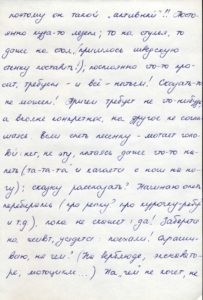 поэтому он такой „активный"!! Посто-
янно куда-то лезет; то на стулья, то
даже на стол, (пришлось шведскую
стенку поставить!), постоянно что-то про-
сит, требует - и всё - песни! Сказать-то
не может! Причем требует не что-нибудь
а вполне конкретное, на другое не согла-
шается. Если спеть песенку - мотает голо-
вой: нет, не эту, пытаясь даже что-то на-
петь (та-та-та и качается с ноги на но-
гу); сказку рассказать? Начинаю опять
перебирать (про репку? про курочку-рябу
и т.д), пока не скажет: да! Заберётся
на живот, усядется: поехали! Спраши-
ваю, на чем? (на верблюде, жеребо-
рё, мотоцикле...) На чем не хочет, не